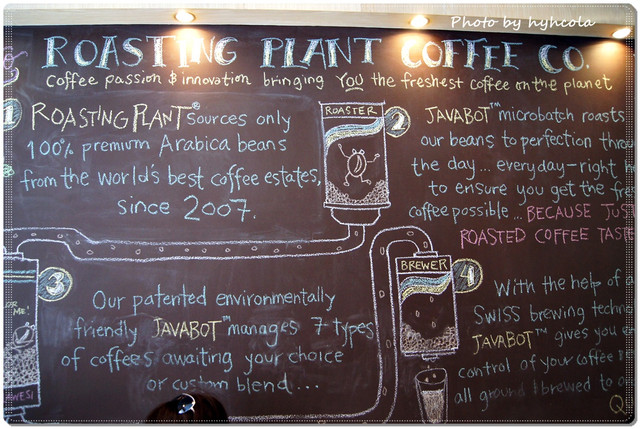 Photo by hyhcola
ROASTING PLANT COFFEE CO.
Coffee passion & innovation bringing YOU the freshest coffee on the planet
1
ROASTING PLANT® Sources only
100% premium Arabica beans
from the world's best coffee estates,
since 2007.
ROASTER
2
JAVABOT™ microbatch roasts
our beans to perfection
the day... everyday-right
to ensure you get the
coffee possible... BECAUSE
ROASTED COFFEE
3
Our patented environmentally
friendly JAVABOT™ manages 7 types
of coffees awaiting your choice
or custom blend...
BREWER
4
With the help of
SWISS brewing
JAVABOT™ gives you
control of your coffee
all ground & brewed to